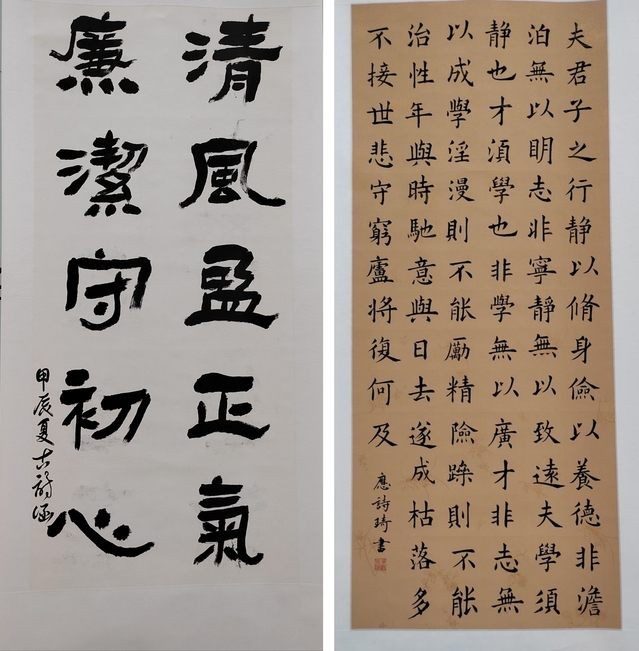 清風盈正氣
廉潔守初心
甲辰夏古
夫君子之行静以脩身儉以養德非澹
泊無以眀志非寧静無以致遠夫學須
静也才湏學也非學無以廣才非志無
以成學淫漫則不能勵精險躁則不能
治性年與時馳意與日去遂成枯落多
不接世悲守窮廬將復何及
應詩琦書